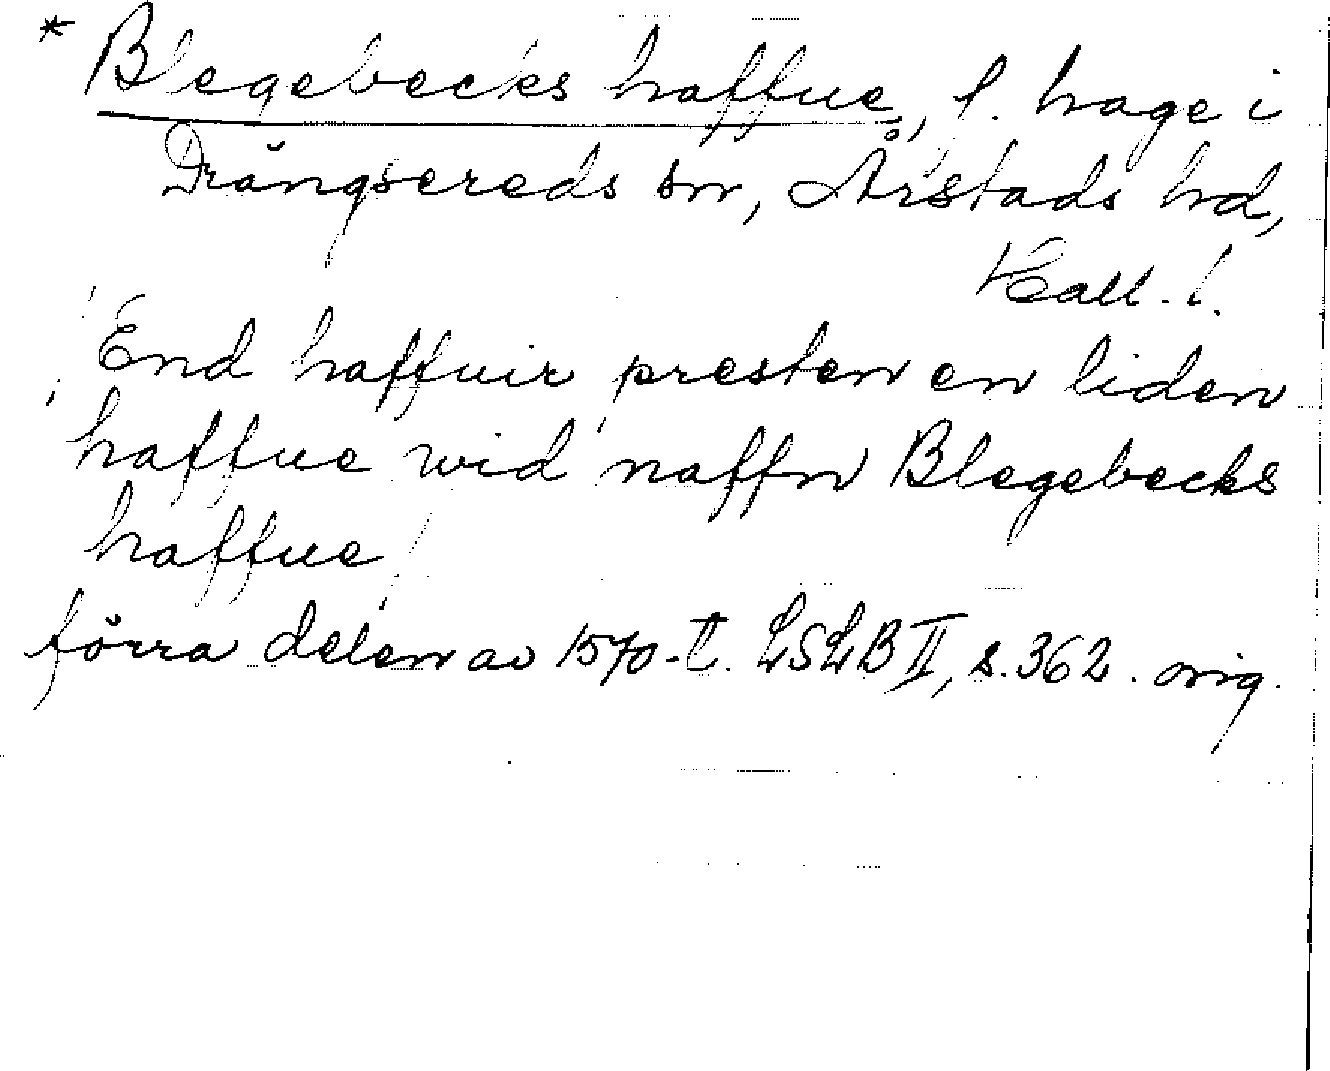 * Blegebecks haffue, f. hage i
Drängsereds sn, Årstads hd,
Hall. l.
End haffuir presten en liden
haffue wid naffn Blegebecks
haffue
förra delen av 1570-t. LSLB II, s. 362. orig.